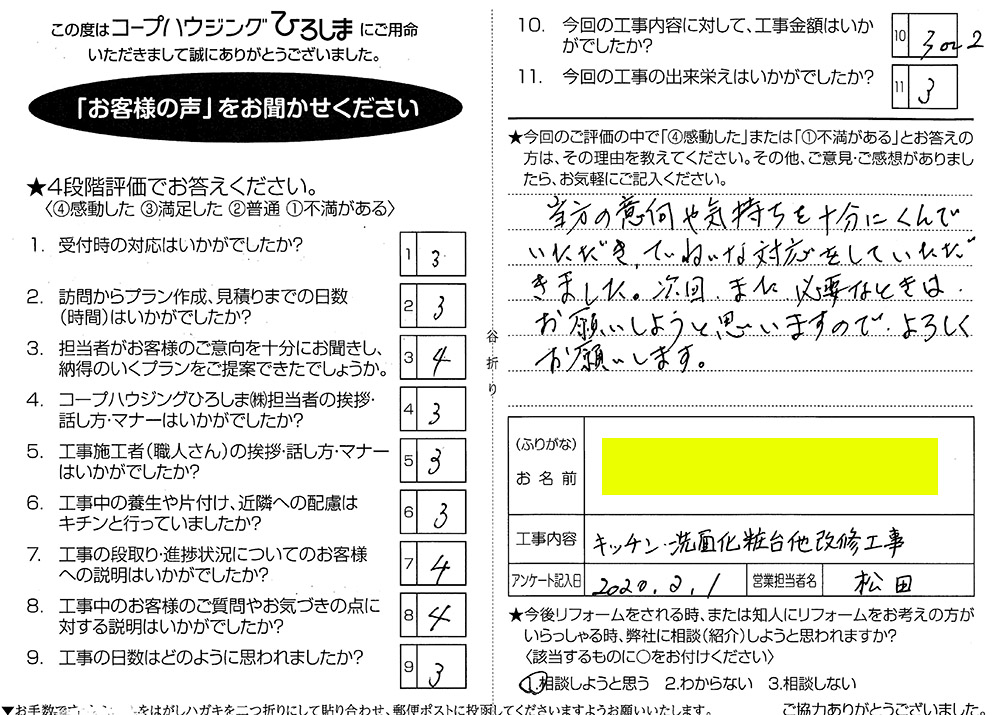 この度はコープハウジングひろしまにご用命
いただきまして誠にありがとうございました。
「お客様の声」をお聞かせください
★4段階評価でお答えください。
〈④感動した ③満足した ②普通 ①不満がある〉
1. 受付時の対応はいかがでしたか?
1 3
2. 訪問からプラン作成、見積りまでの日数
（時間）はいかがでしたか?
2 3
3. 担当者がお客様のご意向を十分にお聞きし、
納得のいくプランをご提案できたでしょうか。
3 4
4. コープハウジングひろしま㈱担当者の挨拶・
話し方・マナーはいかがでしたか?
4 3
5. 工事施工者（職人さん）の挨拶・話し方・マナー
はいかがでしたか?
5 3
6. 工事中の養生や片付け、近隣への配慮は
キチンと行っていましたか?
6 3
7. 工事の段取り・進捗状況についてのお客様
への説明はいかがでしたか?
7 4
8. 工事中のお客様のご質問やお気づきの点に
対する説明はいかがでしたか?
8 4
9. 工事の日数はどのように思われましたか?
9 3
▼お手数ですが
をはがしハガキを二つ折りにして貼り合わせ、郵便ポストに投函してくださいますようお願いいたします。
谷折り
10. 今回の工事内容に対して、工事金額はいか
がでしたか?
10 3 or 2
11. 今回の工事の出来栄えはいかがでしたか?
11 3
★今回のご評価の中で「④感動した」または「①不満がある」とお答えの
方は、その理由を教えてください。その他、ご意見・ご感想がありまし
たら、お気軽にご記入ください。
当方の意向や気持ちを十分にくんで
いただき、ていねいな対応をしていただ
きました。次回、また必要なときは、
お願いしようと思いますので、よろしく
お願いします。
（ふりがな）
お名前
工事内容 キッチン・洗面化粧台他改修工事
アンケート記入日 2020.2.1 営業担当者名 松田
★今後リフォームをされる時、または知人にリフォームをお考えの方が
いらっしゃる時、弊社に相談（紹介）しようと思われますか?
〈該当するものに○をお付けください〉
1.相談しようと思う 2.わからない 3.相談しない
ご協力ありがとうございました。